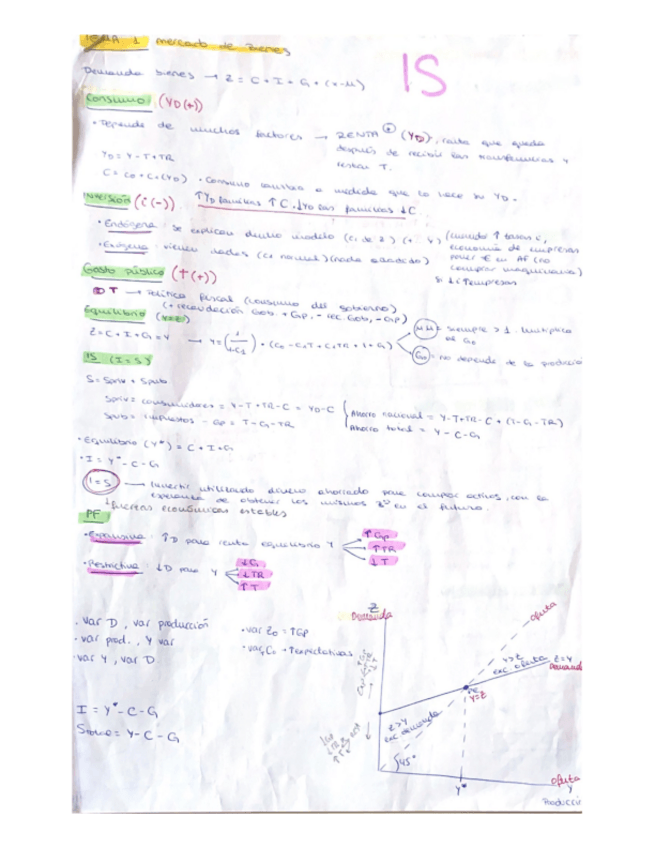 TEMA 1 mercado de Bienes
IS
Demanda bienes → Z = C + I + G + (X-M)
Consumo (YD(+))
• Depende de muchos factores → RENTA (+) (YD), renta que queda
después de recibir las transferencias y
restar T.
YD = Y - T + TR
C = C0 + C1(YD) • Consumo cambia a medida que lo hace su YD.
↑YD familias ↑C. ↓YD las familias ↓C
Inversión (i(-))
• Endógena: se explican dentro modelo
• Exógena: vienen dadas
(cuando ↑ tasas i,
economía de empresas
poner € en AF (no
comprar maquinaria)
Si ↓i ↑empresas
Gasto público (T(+))
T → Política fiscal (consumo del gobierno)
(+ recaudación Gob. + Gp, - rec. Gob, - Gp)
Equilibrio (Y=Z)
Z = C + I + G = Y → Y = (1/1-C1) • (C0 - C1T + C1TR + I + G)
siempre > 1. Multiplica
no depende de la producció
IS (I=S)
S = Spriv + Spub
Spriv = consumidores = Y - T + TR - C = YD - C
Spub = impuestos - GP = T - G - TR
Ahorro nacional = Y - T + TR - C + (T - G - TR)
Ahorro total = Y - C - G
• Equilibrio (Y*) = C + I + G
• I = Y* - C - G
I = S → Invertir utilizando dinero ahorrado para comprar activos, con la
esperanza de obtener los mismos en el futuro.
↓ fuerzas económicas estables
PF
• Expansiva: ↑D para renta equilibrio Y
↑Gp
↑TR
↓T
• Restrictiva: ↓D para Y
↓G
↓TR
↑T
• var D, var producción
• var prod., Y var
• var Y, var D
• var Z0 = ↑GP
• var C0 → ↑expectativas
I = Y* - C - G
= Y - C - G
Z
Demanda
oferta
Y>Z
exc oferta
Z=Y
Demanda
Y=Z
Z>Y
exc demanda
45°
Y*
oferta
Y
Producció